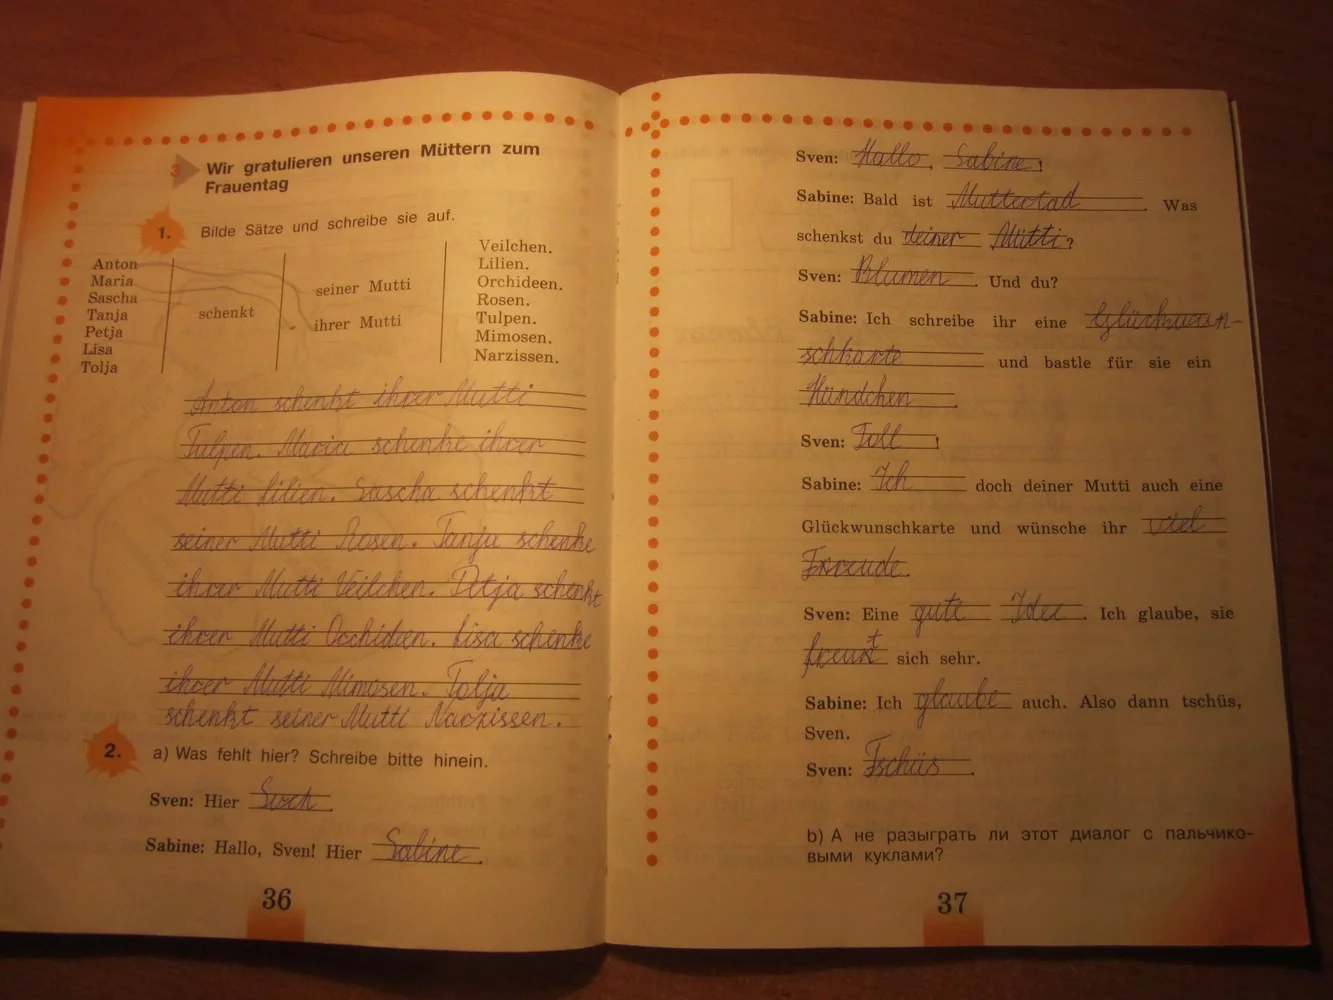 3 Wir gratulieren unseren Müttern zum
Frauentag
1. Bilde Sätze und schreibe sie auf.
Anton
Maria
Sascha
Tanja
Petja
Lisa
Tolja
schenkt
seiner Mutti
ihrer Mutti
Veilchen.
Lilien.
Orchideen.
Rosen.
Tulpen.
Mimosen.
Narzissen.
Anton schenkt ihrer Mutti
Tulpen. Maria schenkt ihrer
Mutti Lilien. Sascha schenkt
seiner Mutti Rosen. Tanja schenkt
ihrer Mutti Veilchen. Petja schenkt
ihrer Mutti Orchideen. Lisa schenkt
ihrer Mutti Mimosen. Tolja
schenkt seiner Mutti Narzissen.
2. a) Was fehlt hier? Schreibe bitte hinein.
Sven: Hier
Sabine: Hallo, Sven! Hier Sabine.
36
Sven: Hallo, Sabine!
Sabine: Bald ist Muttertad. Was
schenkst du deiner Mutti?
Sven: Blumen. Und du?
Sabine: Ich schreibe ihr eine Glückwun-
schkarte und bastle für sie ein
Hündchen.
Sven: Toll!
Sabine: Ich doch deiner Mutti auch eine
Glückwunschkarte und wünsche ihr viel
Freude.
Sven: Eine gute Idee. Ich glaube, sie
freut sich sehr.
Sabine: Ich glaube auch. Also dann tschüs,
Sven.
Sven: Tschüs.
b) А не разыграть ли этот диалог с пальчико-
выми куклами?
37